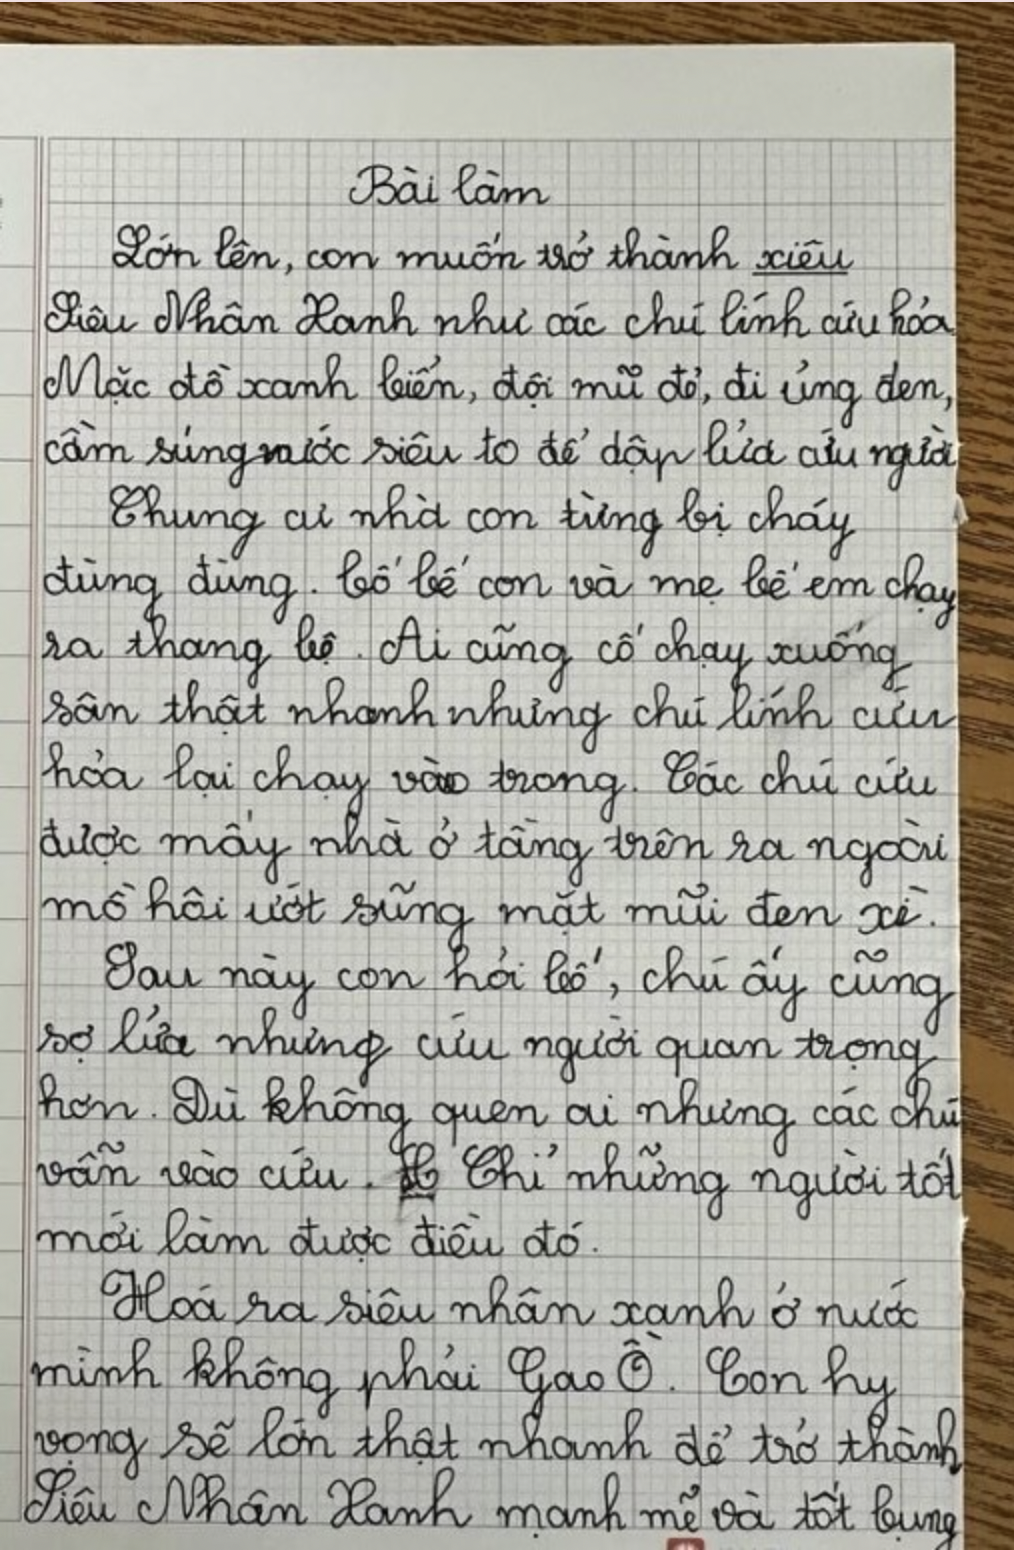 Bài làm
Lớn lên, con muốn trở thành xiêu
Siêu Nhân Xanh như các chú lính cứu hỏa
Mặc đồ xanh biển, đội mũ đỏ, đi ủng đen,
cầm súng nước siêu to để dập lửa cứu người
Chung cư nhà con từng bị cháy
đùng đùng. bố bế con và mẹ bế em chạy
ra thang bộ. Ai cũng cố chạy xuống
sân thật nhanh nhưng chú lính cứu
hỏa lại chạy vào trong. Các chú cứu
được mấy nhà ở tầng trên ra ngoài
mồ hôi ướt sũng mặt mũi đen xì.
Sau này con hỏi bố, chú ấy cũng
sợ lửa nhưng cứu người quan trọng
hơn. Dù không quen ai nhưng các chú
vẫn vào cứu. Chỉ những người tốt
mới làm được điều đó.
Hoá ra siêu nhân xanh ở nước
mình không phải Gao Ồ. Con hy
vọng sẽ lớn thật nhanh để trở thành
Siêu Nhân Xanh mạnh mẽ và tốt bụng